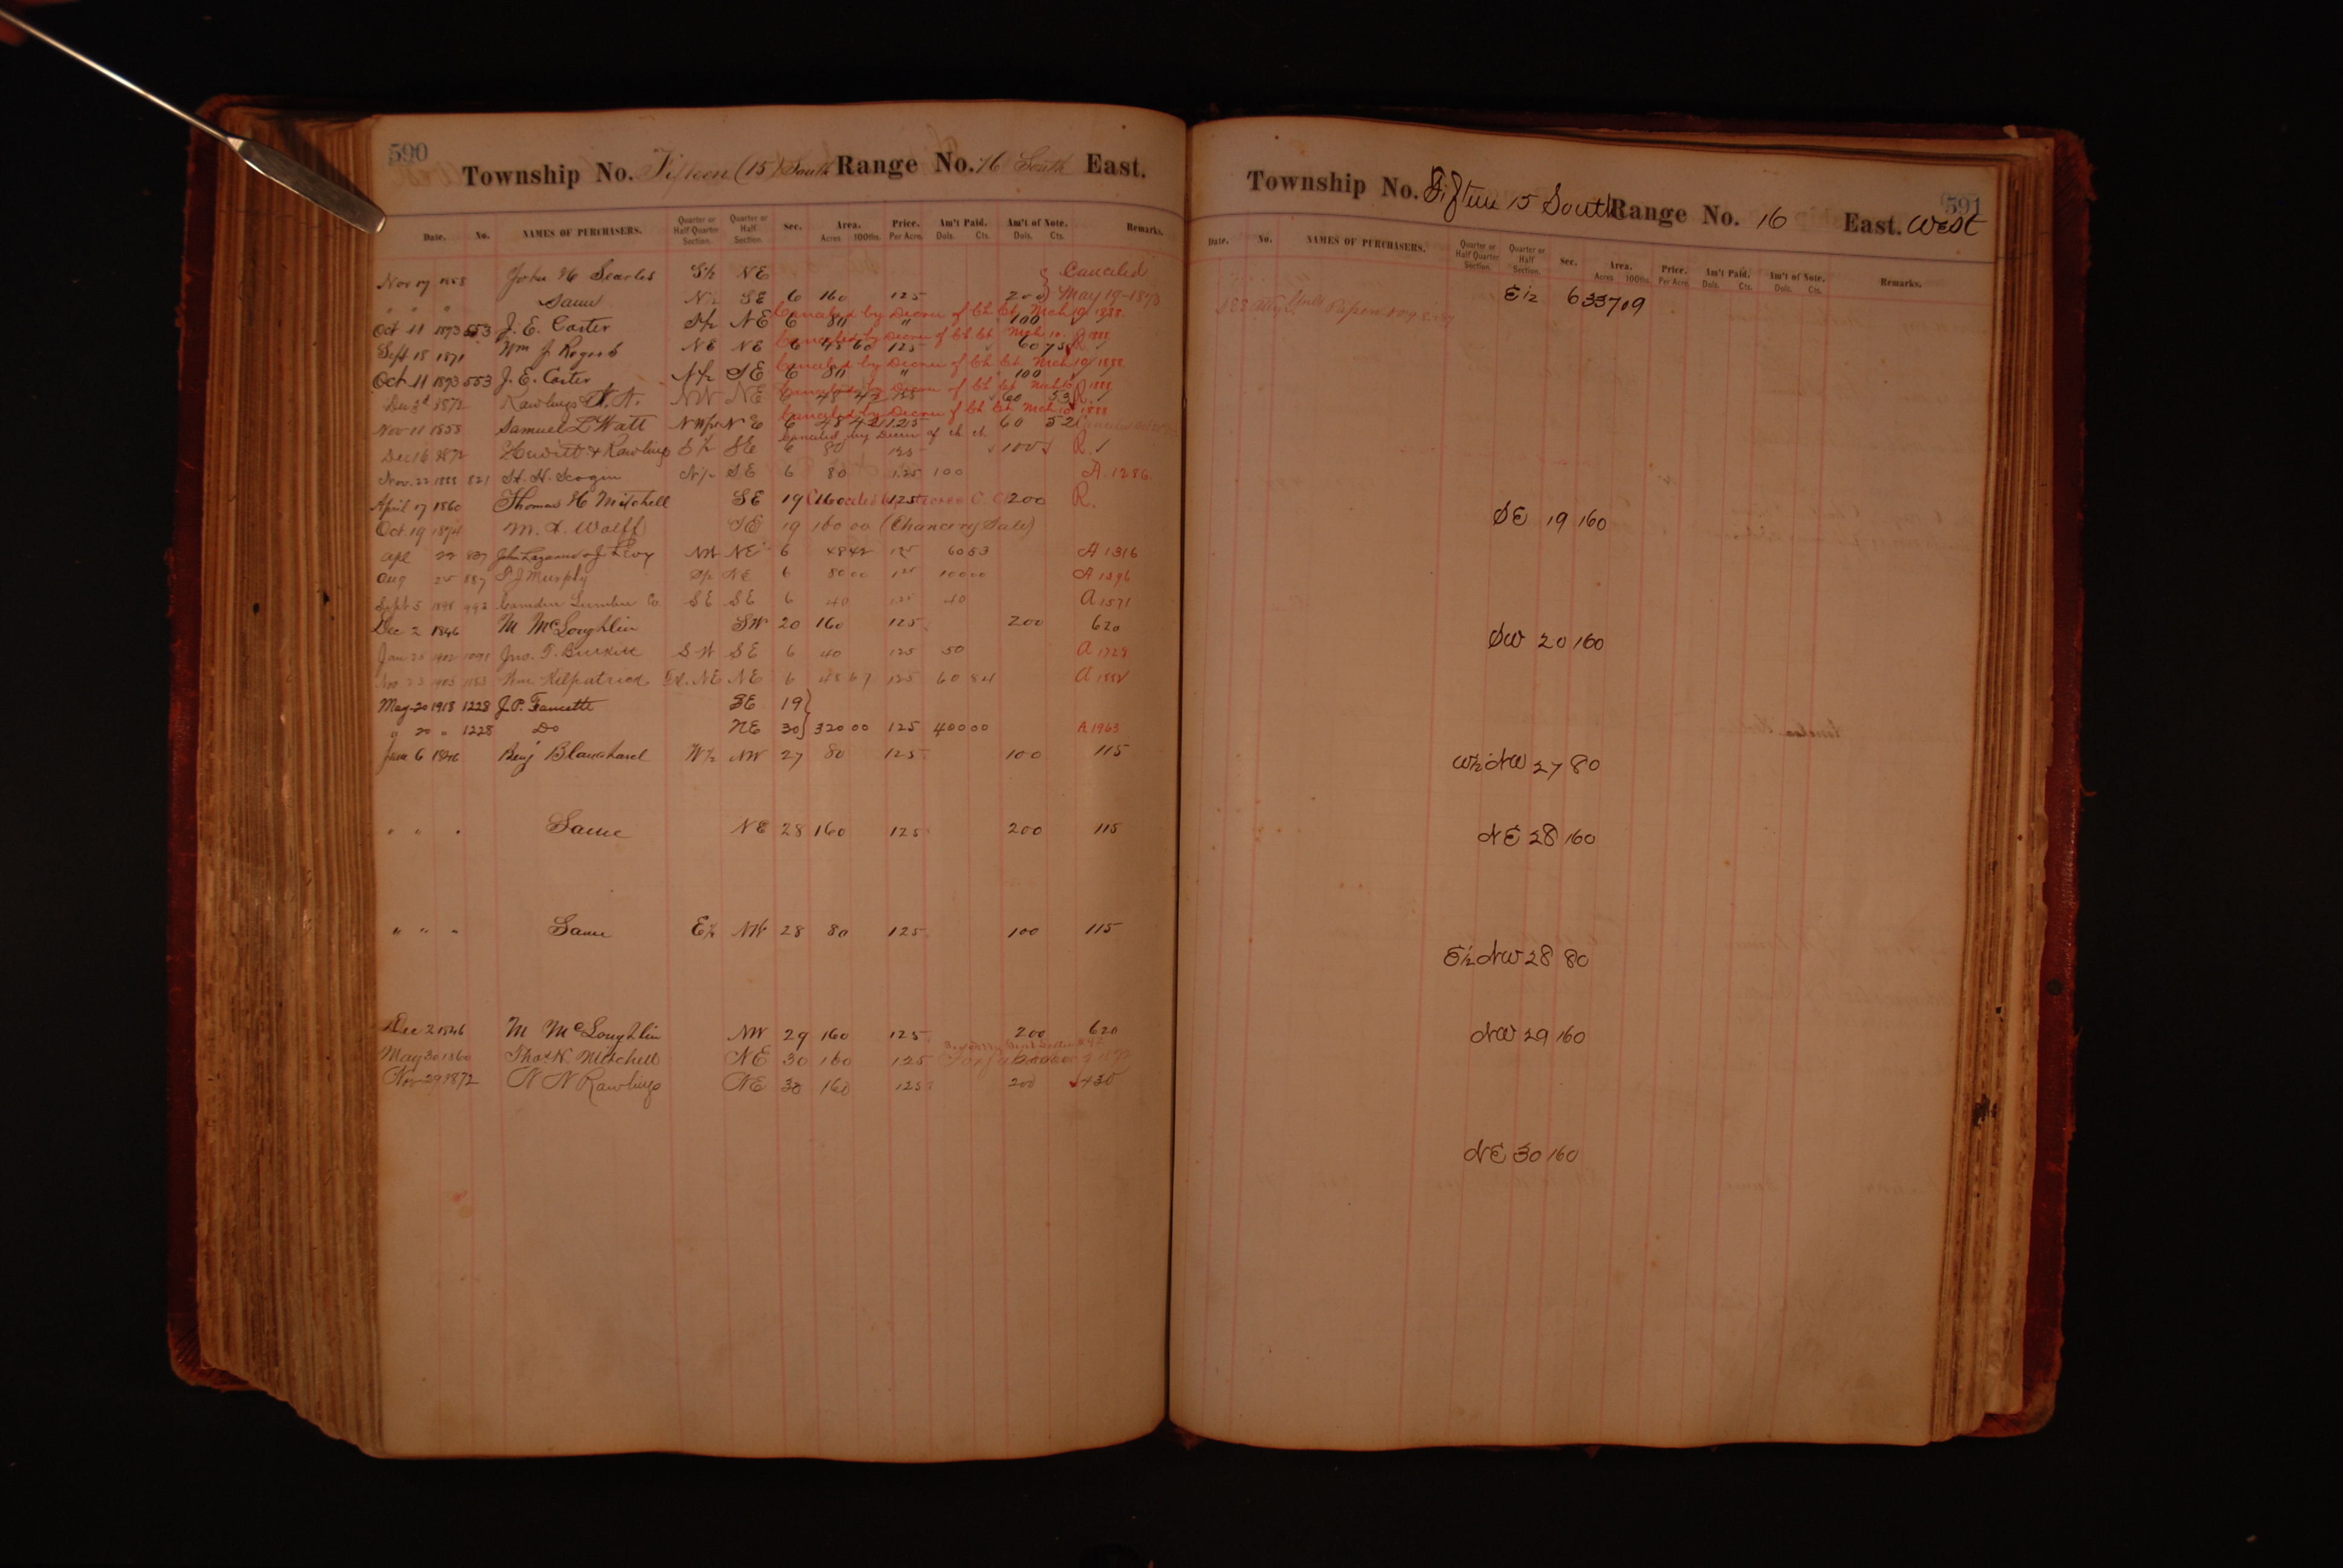 590
Township No. Fifteen (15) South Range No. 16 South East.
Date. No. NAMES OF PURCHASERS. Quarter or Half Quarter Section. Quarter or Half Section. Sec. Area. Acres 100ths. Price. Per Acre Am't Paid. Dols. Cts. Am't of Note. Dols. Cts. Remarks.
Nov 17 1858 John H Searles S½ NE Canceled
" " " Same N½ SE 6 160 125 200 May 19-1873
Canceled by Decree of Ch Ct Mch 19 1888
Oct 11 1893 553 J. E. Carter S½ NE 6 80 " 100
Canceled by Decree of Ch Ct Mch 10 1888
Sept 18 1871 Wm J Rogers NE NE 6 48 60 125 60 75 R
Canceled by Decree of Ch Ct Mch 10 1888
Oct 11 1893 553 J. E. Carter N½ SE 6 80 " 100
Canceled by Decree of Ch Ct Mch 1888
Dec 3d 1872 Rawlings N. N. NW NE 6 48 42 125 60 53 R.
Canceled by Decree of Ch Ct Mch 10 1888
Nov 11 1858 Samuel L Watt NW fr N E 6 48 42 1.25 60 52 Canceled
Canceled by Decree of Ch Ct
Dec 16 1872 Hewitt & Rawlings S½ SE 6 80 125 100 R. ✓
Nov. 22 1888 821 H. N. Scogin N½ SE 6 80 1.25 100 A. 1286
April 17 1860 Thomas H Mitchell SE 19 160 125 200 R.
Oct 19 1874 M. L. Wolff SE 19 160 00 (Chancery Sale)
Apl 22 837 John Lazarus & J Levy NW NE 6 48 42 125 60 53 A 1316
Aug 25 887 P. J Murphy S½ NE 6 80 00 125 100 00 A 1396
Sept 5 1898 992 Camden Lumber Co SE SE 6 40 125 50 A 1571
Dec 2 1846 M McLoughlin SW 20 160 125 200 620
Jan 25 1902 1091 Jno. T. Burkett SW SE 6 40 125 50 A 1728
Nov. 23 1905 1183 Wm Kilpatrick NE NE 6 48 67 125 60 84
May 20 1918 1228 J. P. Faucette SE 19
" 20 " 1228 Do NE 30 320 00 125 400 00 A 1963
June 6 1846 Benj Blanchard W½ NW 27 80 125 100 115
" " " Same NE 28 160 125 200 115
" " " Same E½ NW 28 80 125 100 115
Dec 2 1846 M McLoughlin NW 29 160 125 200 620
May 30 1860 Thos H. Mitchell NE 30 160 125
Nov 29 1872 N N Rawlings NE 30 160 125 200 430
591
Township No. Fifteen 15 South Range No. 16 East. West
Date. No. NAMES OF PURCHASERS. Quarter or Half Quarter Section. Quarter or Half Section. Sec. Area. Acres 100ths. Price. Per Acre Am't Paid. Dols. Cts. Am't of Note. Dols. Cts. Remarks.
E½ 6 337 09
SE 19 160
SW 20 160
W½ NW 27 80
NE 28 160
E½ NW 28 80
NW 29 160
NE 30 160